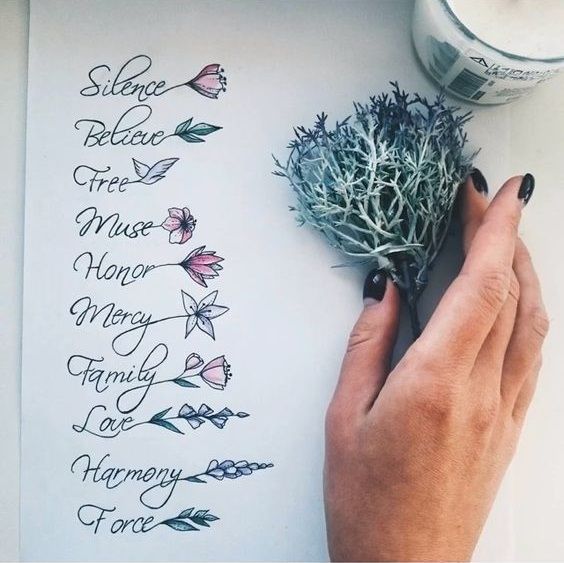 Silence
Believe
Free
Muse
Honor
Mercy
Family
Love
Harmony
Force